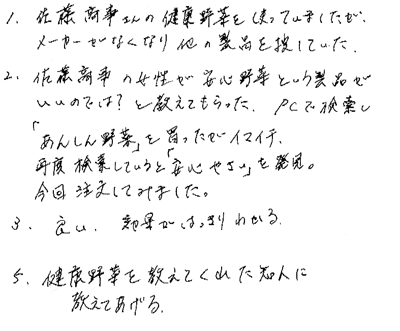 1. 佐藤商事さんの健康野菜を使っていましたが、
メーカーがなくなり他の製品を探していた。
2. 佐藤商事の女性が安心野菜という製品が
いいのでは？と教えてもらった。PCで検索し
「あんしん野菜」を買ったがイマイチ、
再度検索していると「安心やさい」を発見。
今回注文してみました。
3. 良い。効果がはっきりわかる。
5. 健康野菜を教えてくれた知人に
教えてあげる。